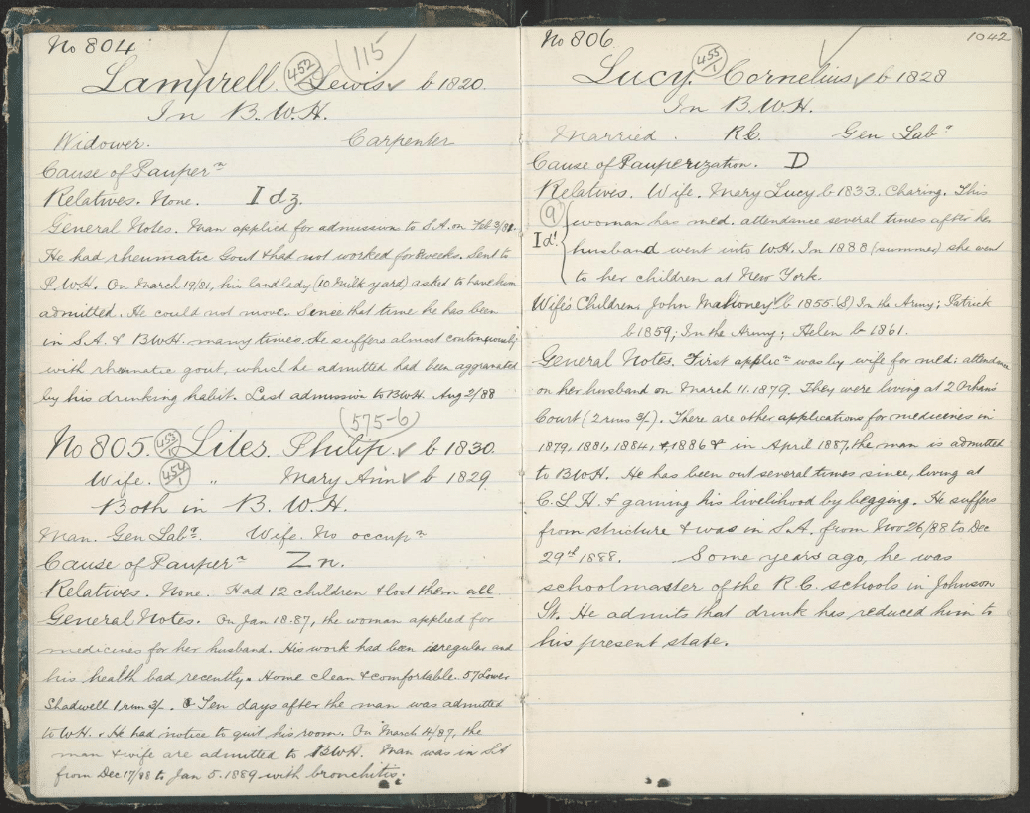 No 804
115
Lamprell. 452/1 Lewis b 1820.
In B.W.H.
Widower. Carpenter
Cause of Pauperⁿ
Relatives. None. I d z.
General Notes. Man applied for admission to S.A. on Feb 3/81.
He had rheumatic Gout & had not worked for 8 weeks. Sent to
P.W.H. On March 19/81, his landlady (10 Milk yard) asked to have him
admitted. He could not move. Since that time he has been
in S.A. & B.W.H. many times. He suffers almost continuously
with rheumatic gout, which he admitted had been aggravated
by his drinking habit. Last admission to BWH. Aug 2/88
(575-6)
No 805. 453/1 Liles. Philip. b 1830.
Wife. 454/1 " Mary Ann b 1829.
Both in B.W.H.
Man. Gen Labʳ. Wife. No occupⁿ
Cause of Pauperⁿ Z n.
Relatives. None. Had 12 children & lost them all.
General Notes. On Jan 18.87, the woman applied for
medicines for her husband. His work had been irregular and
his health bad recently. Home clean & comfortable. 57 Lower
Shadwell 1 rm 3/-. Ten days after the man was admitted
to W.H. & He had notice to quit his room. On March 4/87, the
man & wife are admitted to BWH. Man was in SA
from Dec 17/88 to Jan 5. 1889 with bronchitis.
No 806. 1042
Lucy. 455/1 Cornelius b 1828
In B.W.H.
Married. R.C. Gen Labʳ
Cause of Pauperization. D
Relatives. Wife. Mary Lucy b 1833. Charing. This
(9) woman has med. attendance several times after her
I d'. husband went into W.H. In 1888 (summer) she went
to her children at New York.
Wife's Children. John Mahoney b. 1855. (S) In the Army; Patrick
b 1859; In the Army; Helen b 1861.
General Notes. First applicⁿ was by wife for med: attendance
on her husband on March 11. 1879. They were living at 2 Orhans
Court (2 rms 3/-). There are other applications for medicines in
1879, 1881, 1884, & 1886 & in April 1887, the man is admitted
to BWH. He has been out several times since, living at
C.L.H. & gaining his livelihood by begging. He suffers
from stricture & was in S.A. from Nov 26/88 to Dec
29ᵗʰ 1888. Some years ago, he was
schoolmaster of the R.C. schools in Johnson
St. He admits that drink has reduced him to
his present state.